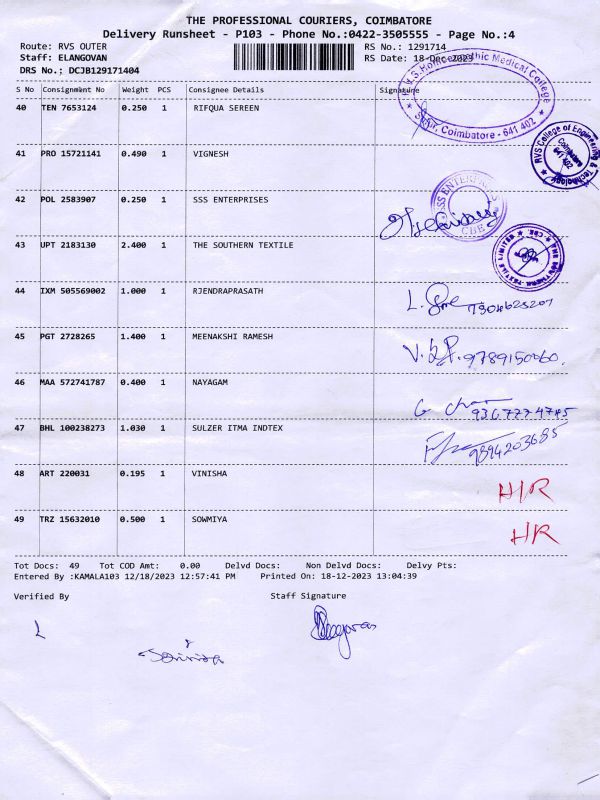 THE PROFESSIONAL COURIERS, COIMBATORE
Delivery Runsheet - P103 - Phone No.:0422-3505555 - Page No.:4
Route: RVS OUTER
RS No.: 1291714
Staff: ELANGOVAN
RS Date: 18-Dec-2023
DRS No.: DCJB129171404
S No Consignment No Weight PCS Consignee Details Signature
40 TEN 7653124 0.250 1 RIFQUA SEREEN
R.V.S. Homoeopathic Medical College
Sulur, Coimbatore - 641 402
41 PRO 15721141 0.490 1 VIGNESH
RVS College of Engineering & Technology
Coimbatore 641 402
42 POL 2583907 0.250 1 SSS ENTERPRISES
SSS ENTERPRISES
CBE
43 UPT 2183130 2.400 1 THE SOUTHERN TEXTILE
THE SOUTHERN TEXTILE LIMITED CBE.
44 IXM 505569002 1.000 1 RJENDRAPRASATH
45 PGT 2728265 1.400 1 MEENAKSHI RAMESH
46 MAA 572741787 0.400 1 NAYAGAM
47 BHL 100238273 1.030 1 SULZER ITMA INDTEX 9894203685
48 ART 220031 0.195 1 VINISHA H/R
49 TRZ 15632010 0.500 1 SOWMIYA HR
Tot Docs: 49 Tot COD Amt: 0.00 Delvd Docs: Non Delvd Docs: Delvy Pts:
Entered By :KAMALA103 12/18/2023 12:57:41 PM Printed On: 18-12-2023 13:04:39
Verified By Staff Signature